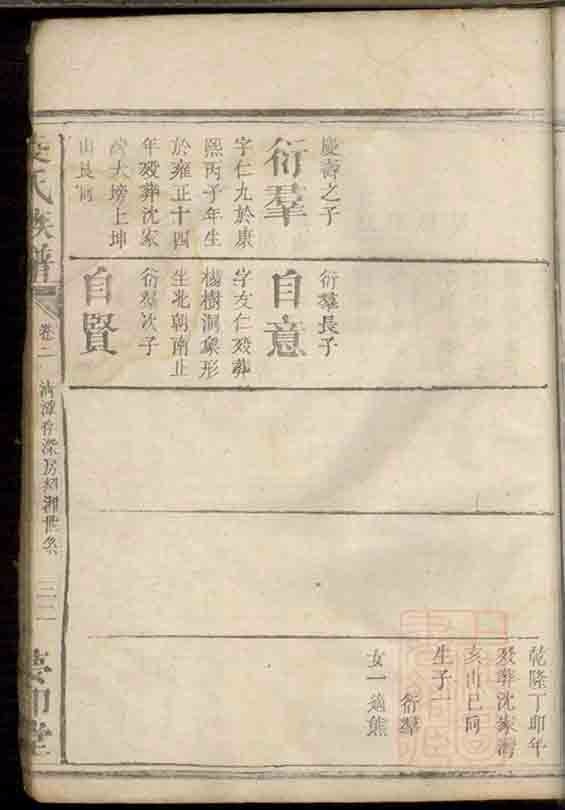 慶壽之子
衍羣
字仁九於康
熙丙子年生
於雍正十四
年歿葬沈家
灣大塝上坤
山艮向
衍羣長子
自意
字友仁歿葬
楊樹洞象形
生北朝南止
衍羣次子
自賢
乾隆丁卯年
歿葬沈家灣
亥山巳向
生子一
衍羣
女一適熊
氏族譜
卷二